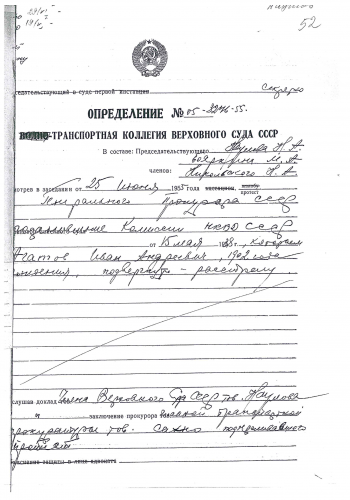 52
седательствующий в суде первой инстанции Секретно
ОПРЕДЕЛЕНИЕ № 05-2246-55.
ВОДНО-ТРАНСПОРТНАЯ КОЛЛЕГИЯ ВЕРХОВНОГО СУДА СССР
В составе: Председательствующего Наумова Н. А.
М. А.
членов: Никольского Н. А.
мотрев в заседании от 25 июня 1955 года
протест
Генерального прокурора СССР
Комиссии НКВД СССР
от 15 мая 1938 г., которым
Агатов Иван Андреевич, 1902 года
рождения, подвергнут – расстрелу.
слушав доклад Члена Верховного Суда СССР тов. Наумова
и заключение прокурора Главной транспортной
прокуратуры тов. Сахно поддержавшего
протест